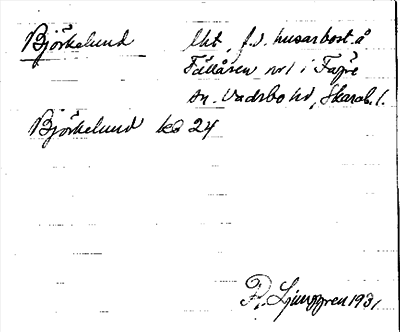 Björkelund lht, f.d. husarbost. å
Fällåsen nr 1 i Fägre
sn. Vadsbo hd, Skarab. l.
Björkelund kb 24
R. Ljunggren 1931